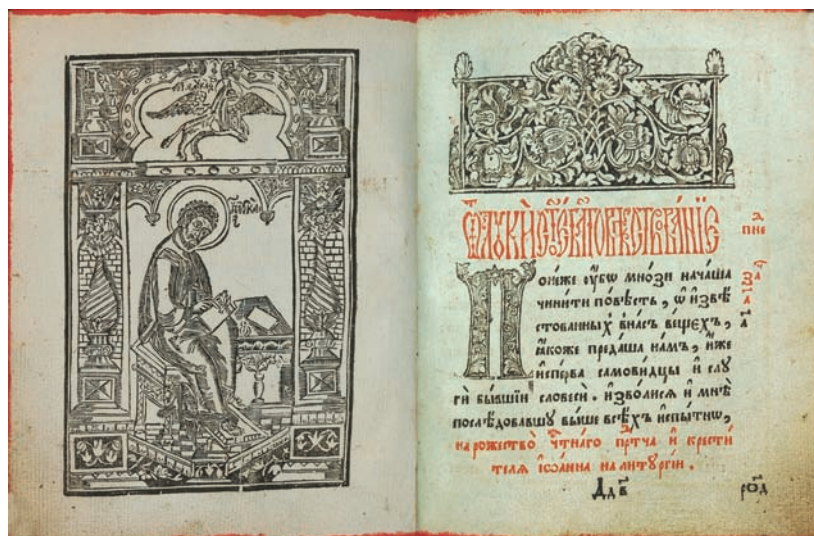 Ѿ лꙋкѝ ст҃о́е бл҃говѣствова́нїе
П
оне́же ᲂу҆́бѡ мно́зи нача́ша
чини́ти по́вѣсть, ѡ҆ и҆звѣ́
стованныхъ в̾на́съ ве́щехъ,
ꙗ҆́коже преда́ша на́мъ, и҆̀же
и҆спе́рва самови́дцы и҆ слꙋ
гѝ бы́вшїи словесѝ. и҆зво́лисѧ и҆ мнѣ̀
послѣ́довавшꙋ вы́ше всѣ́хъ и҆спы́тнѡ,
на рожество̀ чⷭ҇тна́го прⷣтча и҆ крести́
телѧ і҆ѡа́нна на литꙋргі́и.